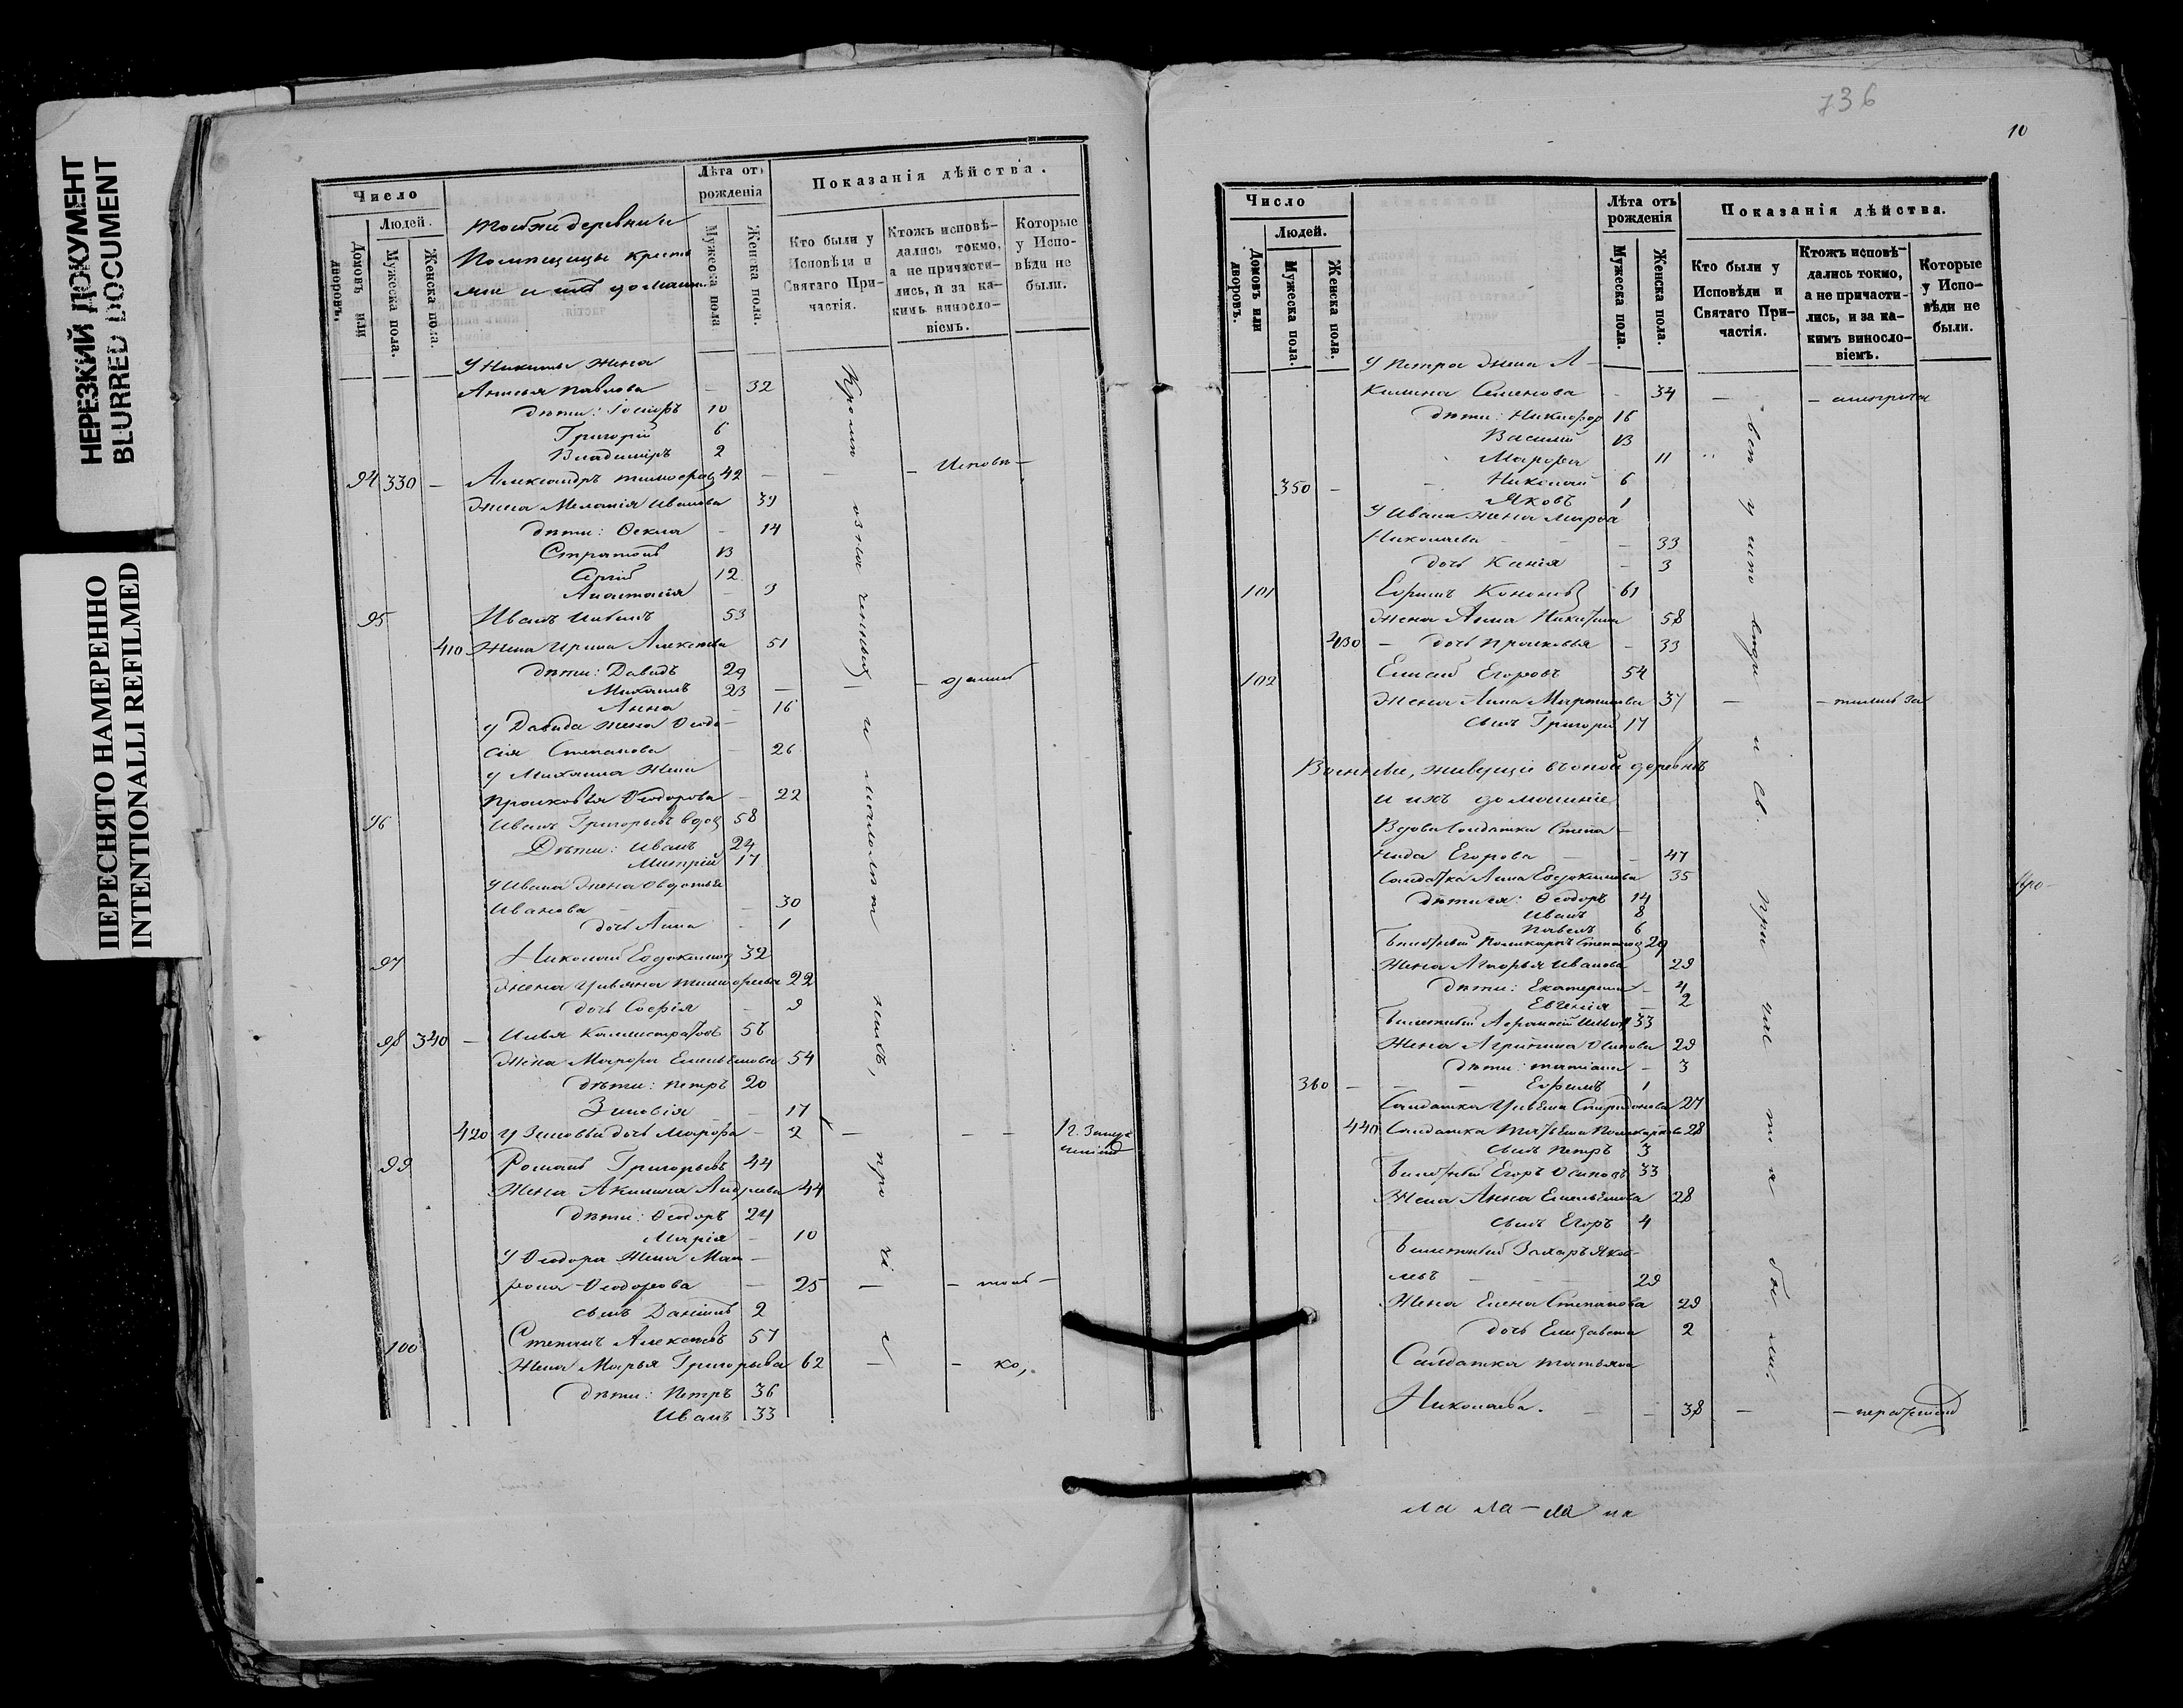 НЕРЕЗКИЙ ДОКУМЕНТ
BLURRED DOCUMENT
ПЕРЕСНЯТО НАМЕРЕННО
INTENTIONALLI REFILMED
Число
Людей.
Домовъ или дворовъ.
Мужеска пола.
Женска пола.
Тойже деревни
Помѣщицы крестья
не и ихъ домашн.
Лѣта отъ рожденія
Мужеска пола
Женска пола.
Показанія дѣйства.
Кто были у Исповѣди и Святаго Причастія.
Ктожъ исповѣдались токмо, а не причастились, и за какимъ винословіемъ.
Которые у Исповѣди не были.
У Никиты жена
Павлова - 32
дѣти: Іосифъ 10
Григорій 6
Владиміръ 2
94 330 - Александръ Тимофеевъ 42 - - - Исповѣ-
жена Меланія Иванова 39
дѣти: Ѳекла - 14
Стратонъ 13
Сергій 12
Анастасія - 9
95 Иванъ 53
410 жена Ирина Алексѣева 51
дѣти: Давидъ 29
Михаилъ 23
Анна - 16
у Давида жена Ѳеодо-
сія Степанова - 26
у Михаила жена
Прасковья Ѳеодорова - 22
96 Иванъ Григорьевъ вдов 58
Дѣти: Иванъ 24
Митрій 17
у Ивана жена Овдотья
Иванова - 30
дочь Анна - 1
97 Николай Евдокимов 32
жена Ульяна Тимофеева 22
дочь Софія - 2
98 340 - Илья Калистратовъ 56
жена Марфа Емельянова 54
дѣти: Петръ 20
Зиновія - 17
420 у Зиновьи дочь Марфа - 2 - - -
99 Романъ Григорьевъ 44
Жена Акилина Андреева 44
дѣти: Ѳеодоръ 24
Марія - 10
у Ѳеодора жена Мат-
рона Ѳеодорова - 25 - - ток -
сынъ Даніилъ 2
100 Степанъ Алексѣевъ 57
Жена Марья Григорьева 62 - - ко,
дѣти: Петръ 36
Иванъ 33
736
10
Число
Людей.
Домовъ или дворовъ.
Мужеска пола.
Женска пола.
Лѣта отъ рожденія
Мужеска пола.
Женска пола.
Показанія дѣйства.
Кто были у Исповѣди и Святаго Причастія.
Ктожъ исповѣдались токмо, а не причастились, и за какимъ винословіемъ.
Которые у Исповѣди не были.
У Петра жена А-
килина Семенова - 34 -
дѣти: Никифор 16
Василій 13
Марфа 11
350 - - Николай 6
Яковъ 1
У Ивана жена Марфа
Николаева - - 33
дочь Ксенія - 3
101 Ефимъ Кононовъ 61
жена Анна Никитина 58
430 - дочь Прасковья - 33
102 Елисей Егоровъ 54
жена Анна Мартинова 37 -
сынъ Григорій 17
Военные, живущіе въ оной деревнѣ
и ихъ домашніе
Вдова Солдатка Степа-
нида Егорова - - 47
Солдатка Анна Евдокимова 35
дѣти ея: Ѳеодоръ 14
Иванъ 8
Павелъ 6
Билетный Поликарпъ Степанов 29
Жена Марья Иванова 29
дѣти: Екатерина - 4
Евгенія - 2
Билетный Афанасій 33
Жена Агрипина Осипова 29
дѣти: Татіана - 3
360 - - - Ефимъ 1
Солдатка Ульяна Спиридонова 27
440 Солдатка Татьяна Поликарпова 28
сынъ Петръ 3
Билетный Егоръ Осиповъ 33
Жена Анна Емельянова 28
сынъ Егоръ 4
Билетный Захаръ Яков-
левъ - - 29
Жена Елена Степанова 29
дочь Елизавета 2
Солдатка Татьяна
Николаева. - - 38 -